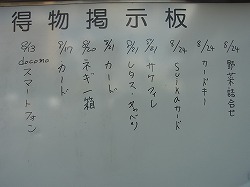 得物掲示板
8/24 野菜詰合せ
8/24 カードキー
8/24 Suicaカード
8/21 サケフィレ
8/21 レタス・キャベツ
8/21 カード
8/20 ネギ一箱
8/17 カード
8/13 docomo スマートフォン